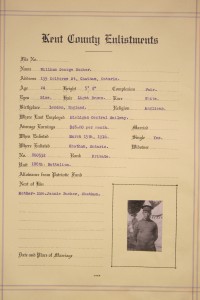 Kent County Enlistments
File No.
Name William George Barnes.
Address 159 Colborne St, Chatham, Ontario.
Age 24 Height 5' 6" Complexion Dark.
Eyes Blue. Hair Light Brown. Race White.
Birthplace London, England. Religion Anglican.
Where Last Employed Michigan Central Railway.
Average Earnings per month. Married
When Enlisted March 15th, 1916. Single Yes.
Where Enlisted Chatham, Ontario. Widower
No. Rank Private.
Unit 186th. Battalion.
Allowance from Patriotic Fund
Next of Kin
Mother-Mrs. Chatham.
Date and Place of Marriage